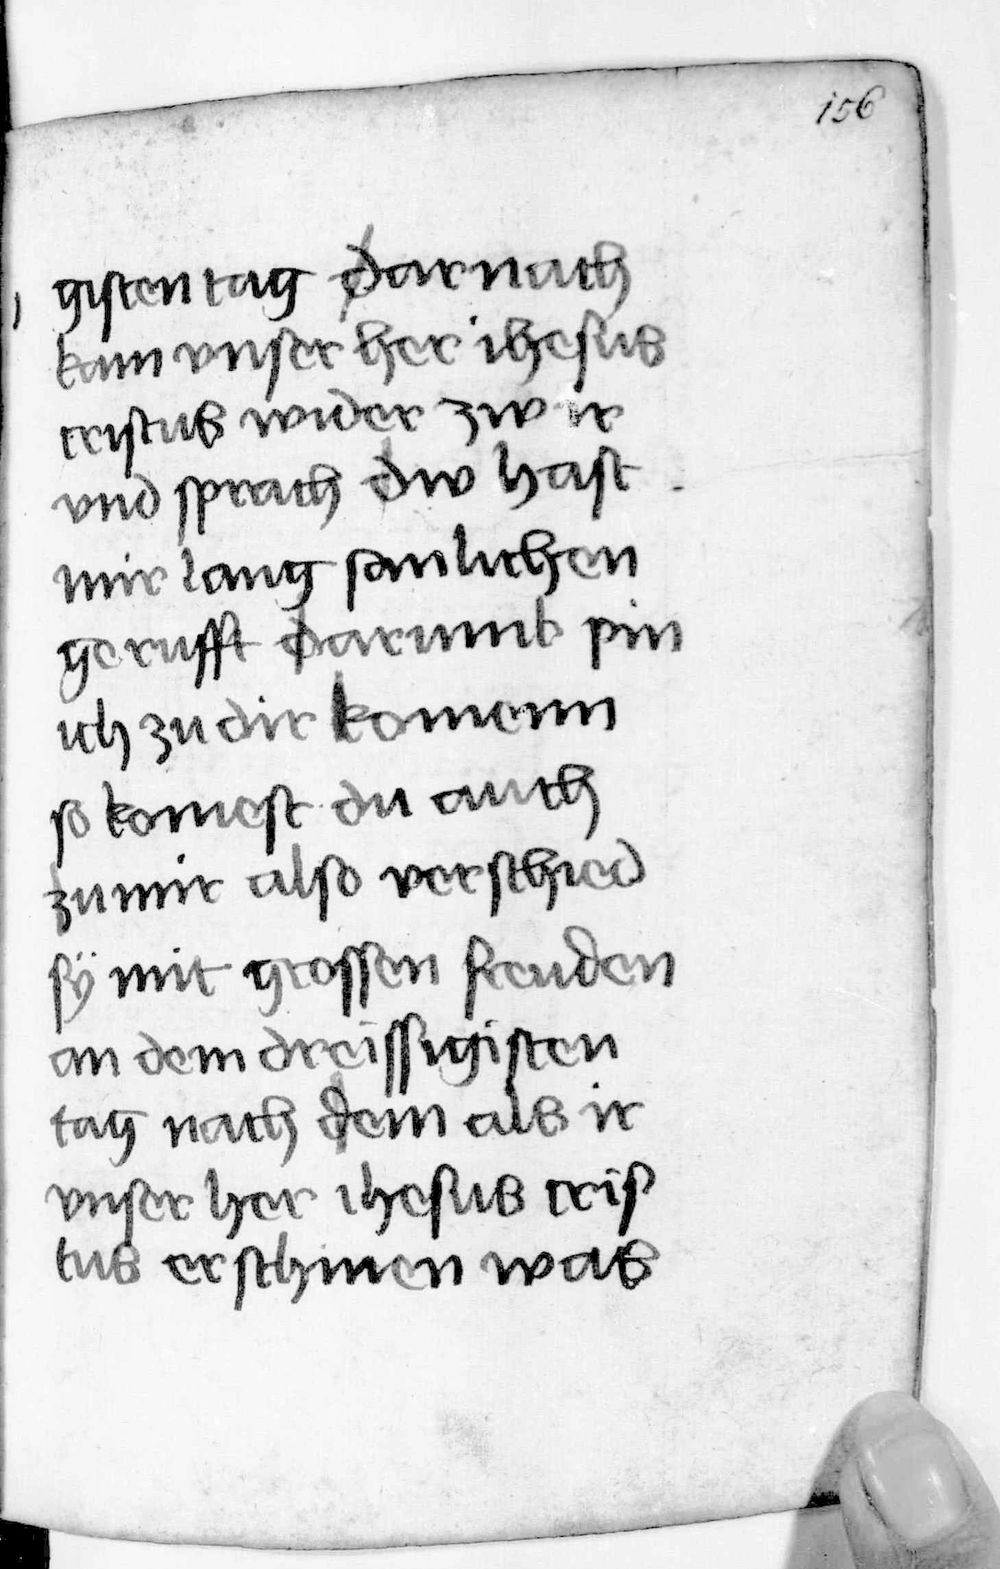 156
gisten tag Darnach
kam vnser her ihesus
cristus wider zw ir
vnd sprach dw hast
mir lang senlichen
gerufft Darumb pin
ich zu dir komenn
so komest du auch
zu mir also verschied
sÿ mit grossen freuden
an dem dreissigisten
tag nach dem als ir
vnser her ihesus cris
tus erschinen was